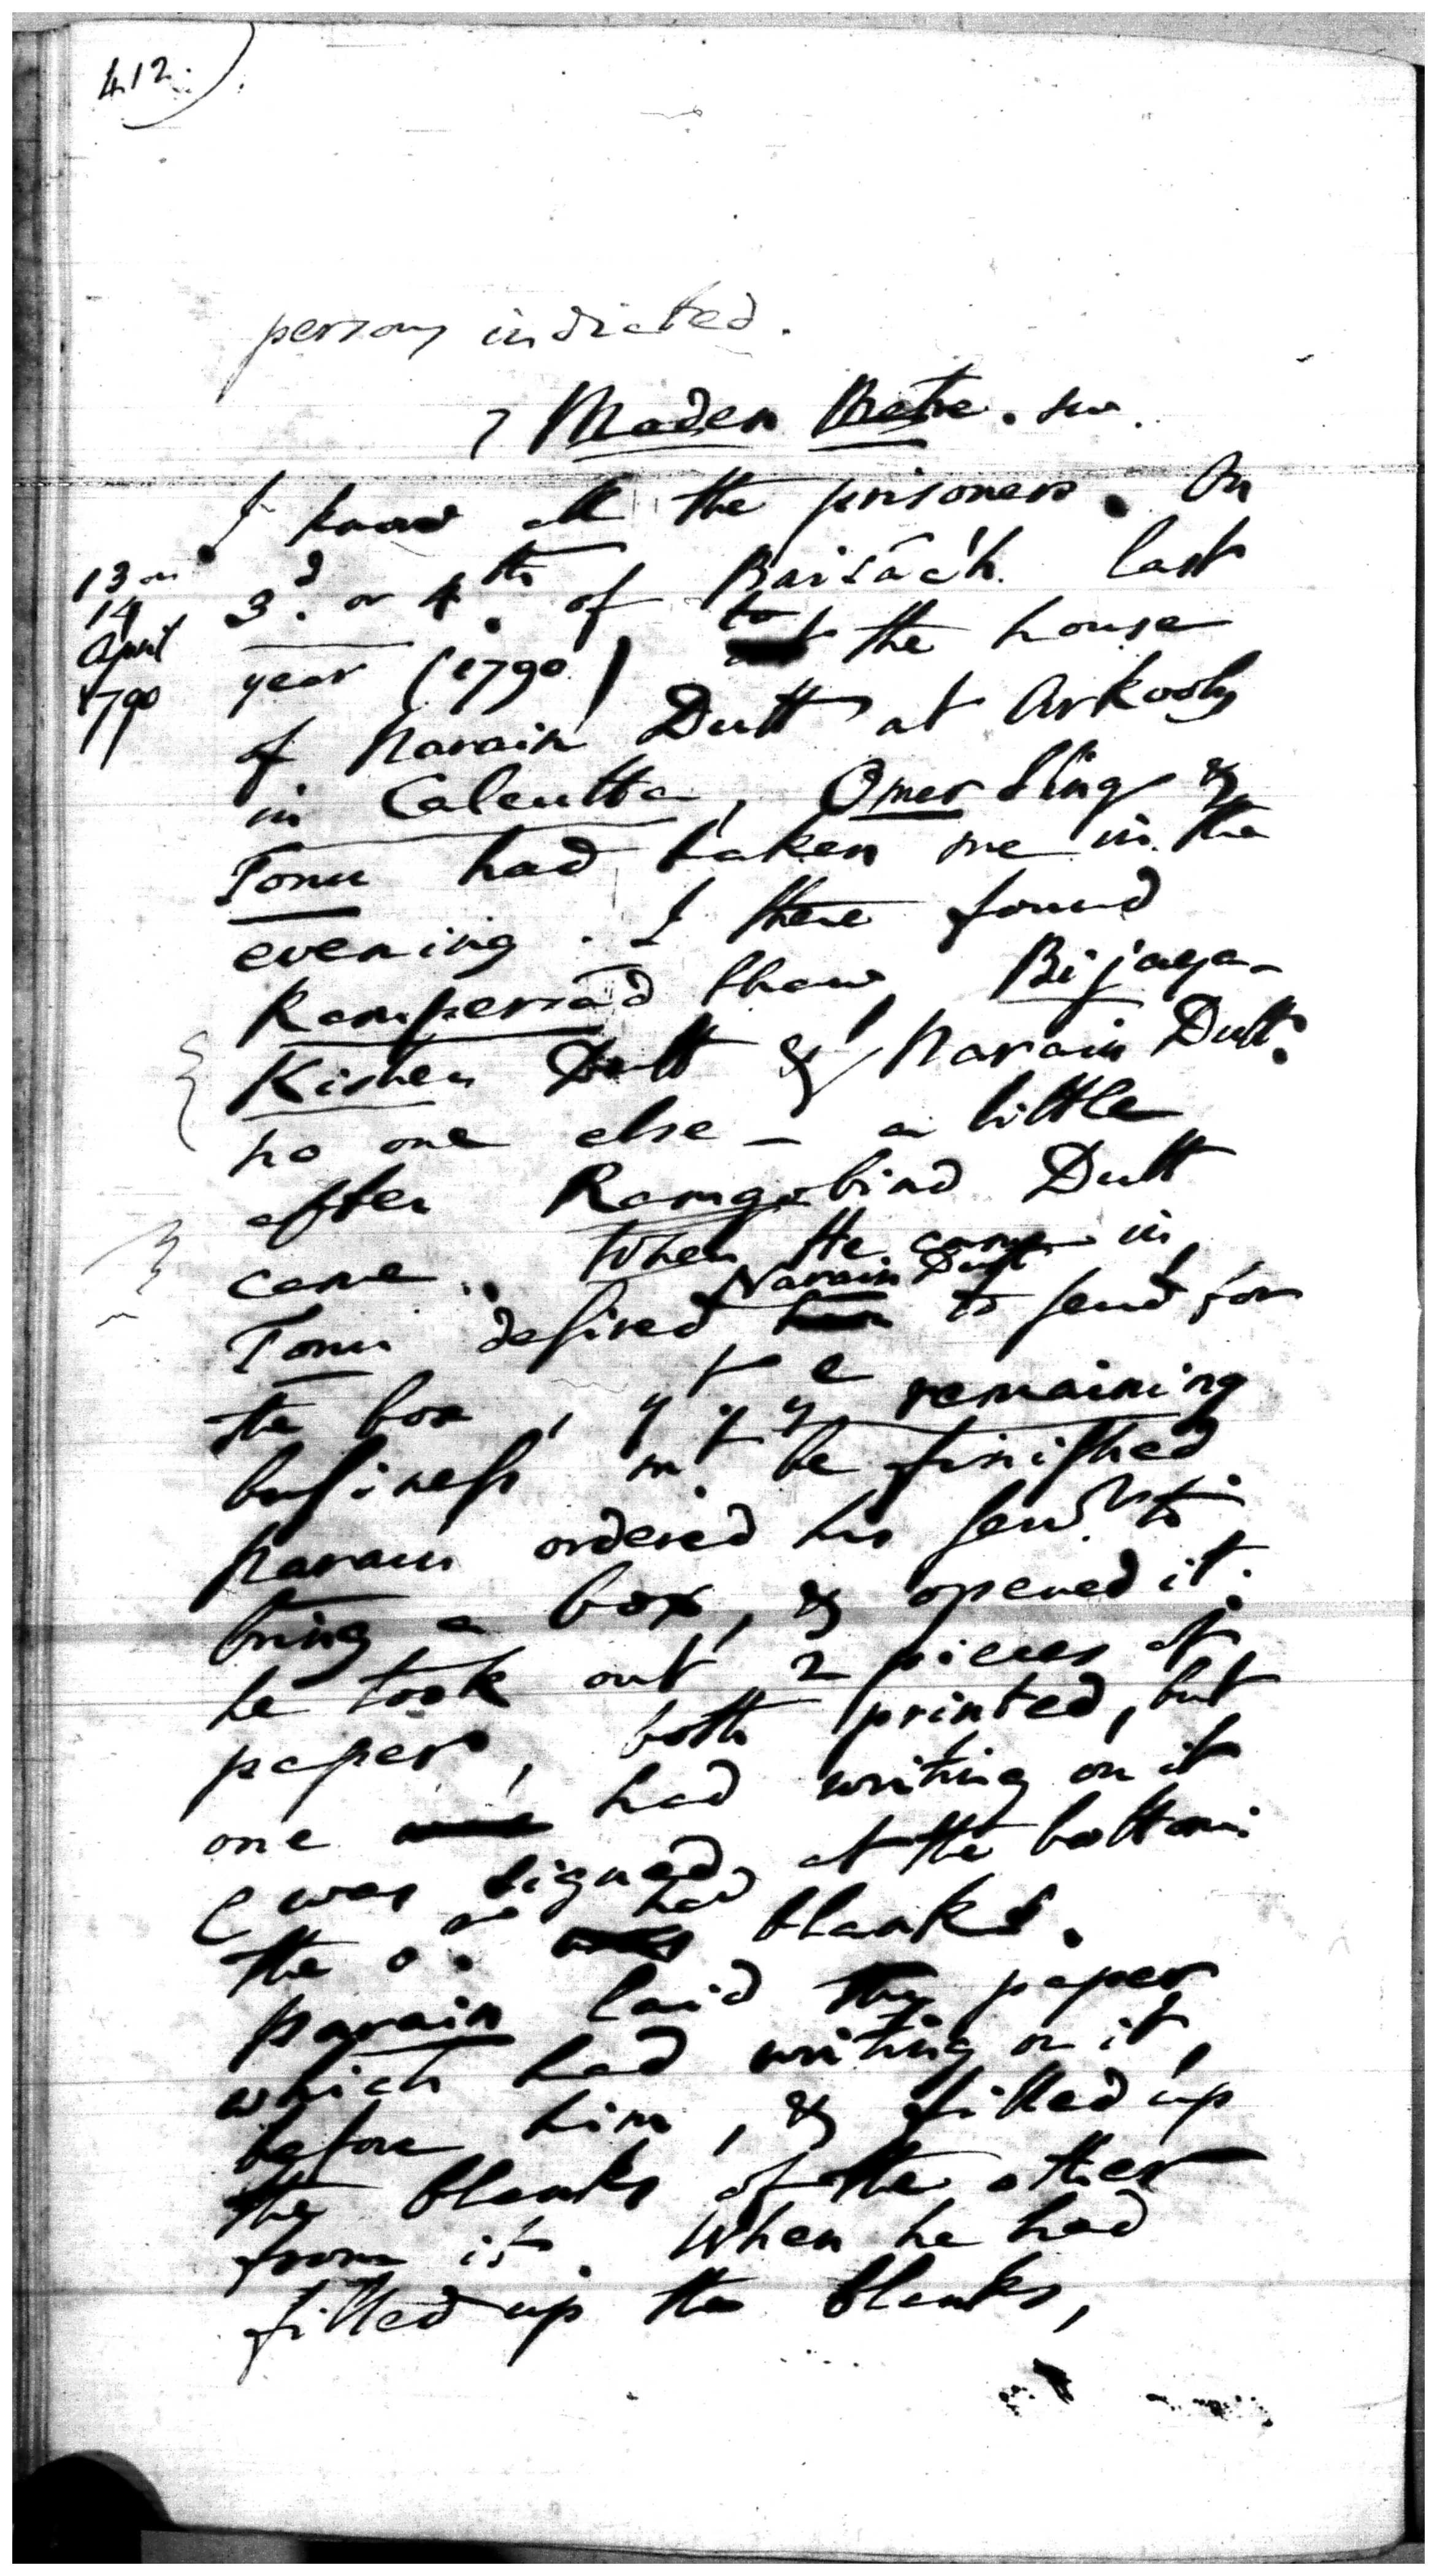 412.)
persons indicted.
7 Maden Betre. sw.
I know all the prisoners. On
13 or
14
April
1790
3.d or 4.th of Baisác'h last
year (1790) to the house
of Narain Dutt at Arkooly
in Calcutta, Omer Sing &
Tonu had taken me in the
evening. I there found
Rampersad Shaw, Bijaya-
Kishen Dutt & Narain Dutt.
no one else – a little
after Ramgobind Dutt
came. When He came in,
Tonu desired Narain Dutt to send for
the box, yt ye remaining
business mt be finished
Narain ordered his servt to
bring a box, & opened it.
he took out 2 pieces of
paper, both printed, but
one had writing on it
& was signed at the bottom
the or had blanks.
Narain laid the paper
which had writing on it,
before him, & filled up
the blanks of the other
from it. When he had
filled up the blanks,